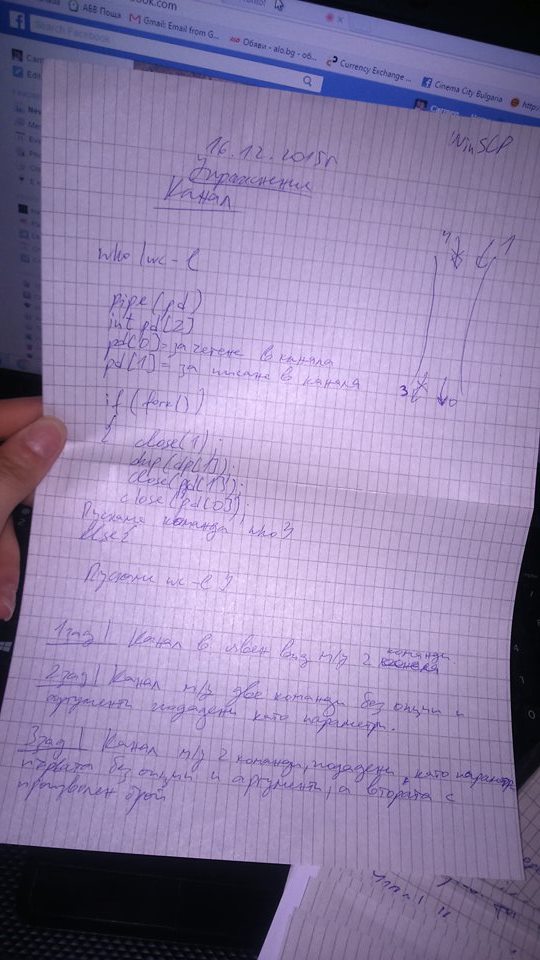 book.com
АБВ Поща
Gmail: Email from G...
Обяви - alo.bg - об...
Currency Exchange ...
Cinema City Bulgaria
http:/
Search Facebook
Edi
WinSCP
16.12.2015г
Упражнение
Канал
who | wc -l
4 1
pipe(pd)
int pd[2]
pd[0] = за четене в канала
pd[1] = за писане в канала
3 0
if (fork())
{ close(1);
dup(dp[1]);
close(pd[1]);
close(pd[0]);
Пускаме команда who }
else {
Пускаме wc -l }
1 зад| Канал в явен вид м/у 2 команди
2 зад| Канал м/у две команди без опции и
аргументи подадени като параметри.
3 зад| Канал м/у 2 команди, подадени като
първата без опции и аргументи, а втората с
произволен брой